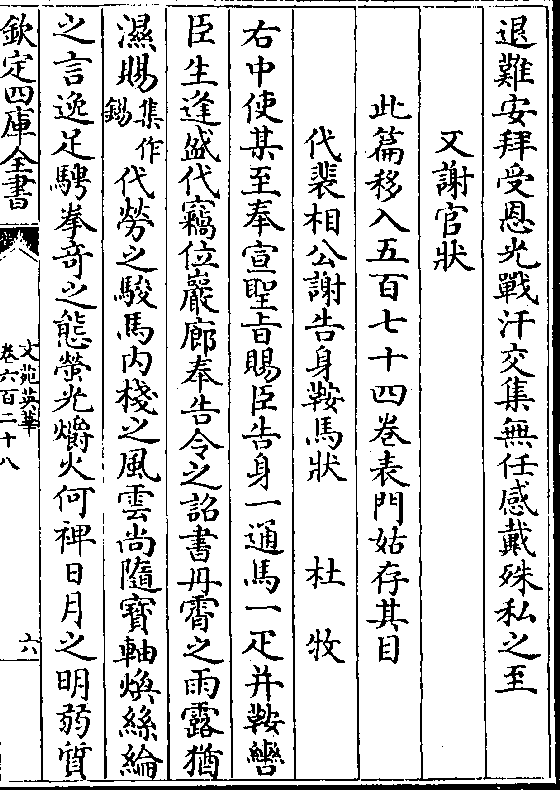 退難安拜受恩光戰汗交集無任感戴殊私之至
又謝官狀
此篇移入五百七十四卷表門姑存其目
代裴相公謝告身鞍馬狀　杜牧
右中使某至奉宣聖旨賜臣告身一通馬一疋并鞍轡
臣生逢盛代竊位巖廊奉告令之詔書丹霄之雨露猶
濕賜集作錫代勞之駿馬内棧之風雲尚隨寶軸煥絲綸
之言逸足騁拳奇之態榮光爝火何禆日月之明弱質
欽定四庫全書
文苑英華
卷六百二十八
六